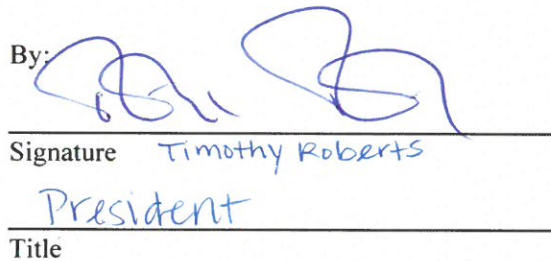 By:
Signature Timothy Roberts
President
Title